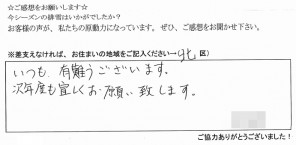 ☆ご感想をお願いします☆
今シーズンの排雪はいかがでしたか？
お客様の声が、私たちの原動力になっています。ぜひ、ご感想をお聞かせ下さい。
※差支えなければ、お住まいの地域をご記入ください→北 区）
いつも、有難うございます。
次年度も宜しくお願い致します。
ご協力ありがとうございました！